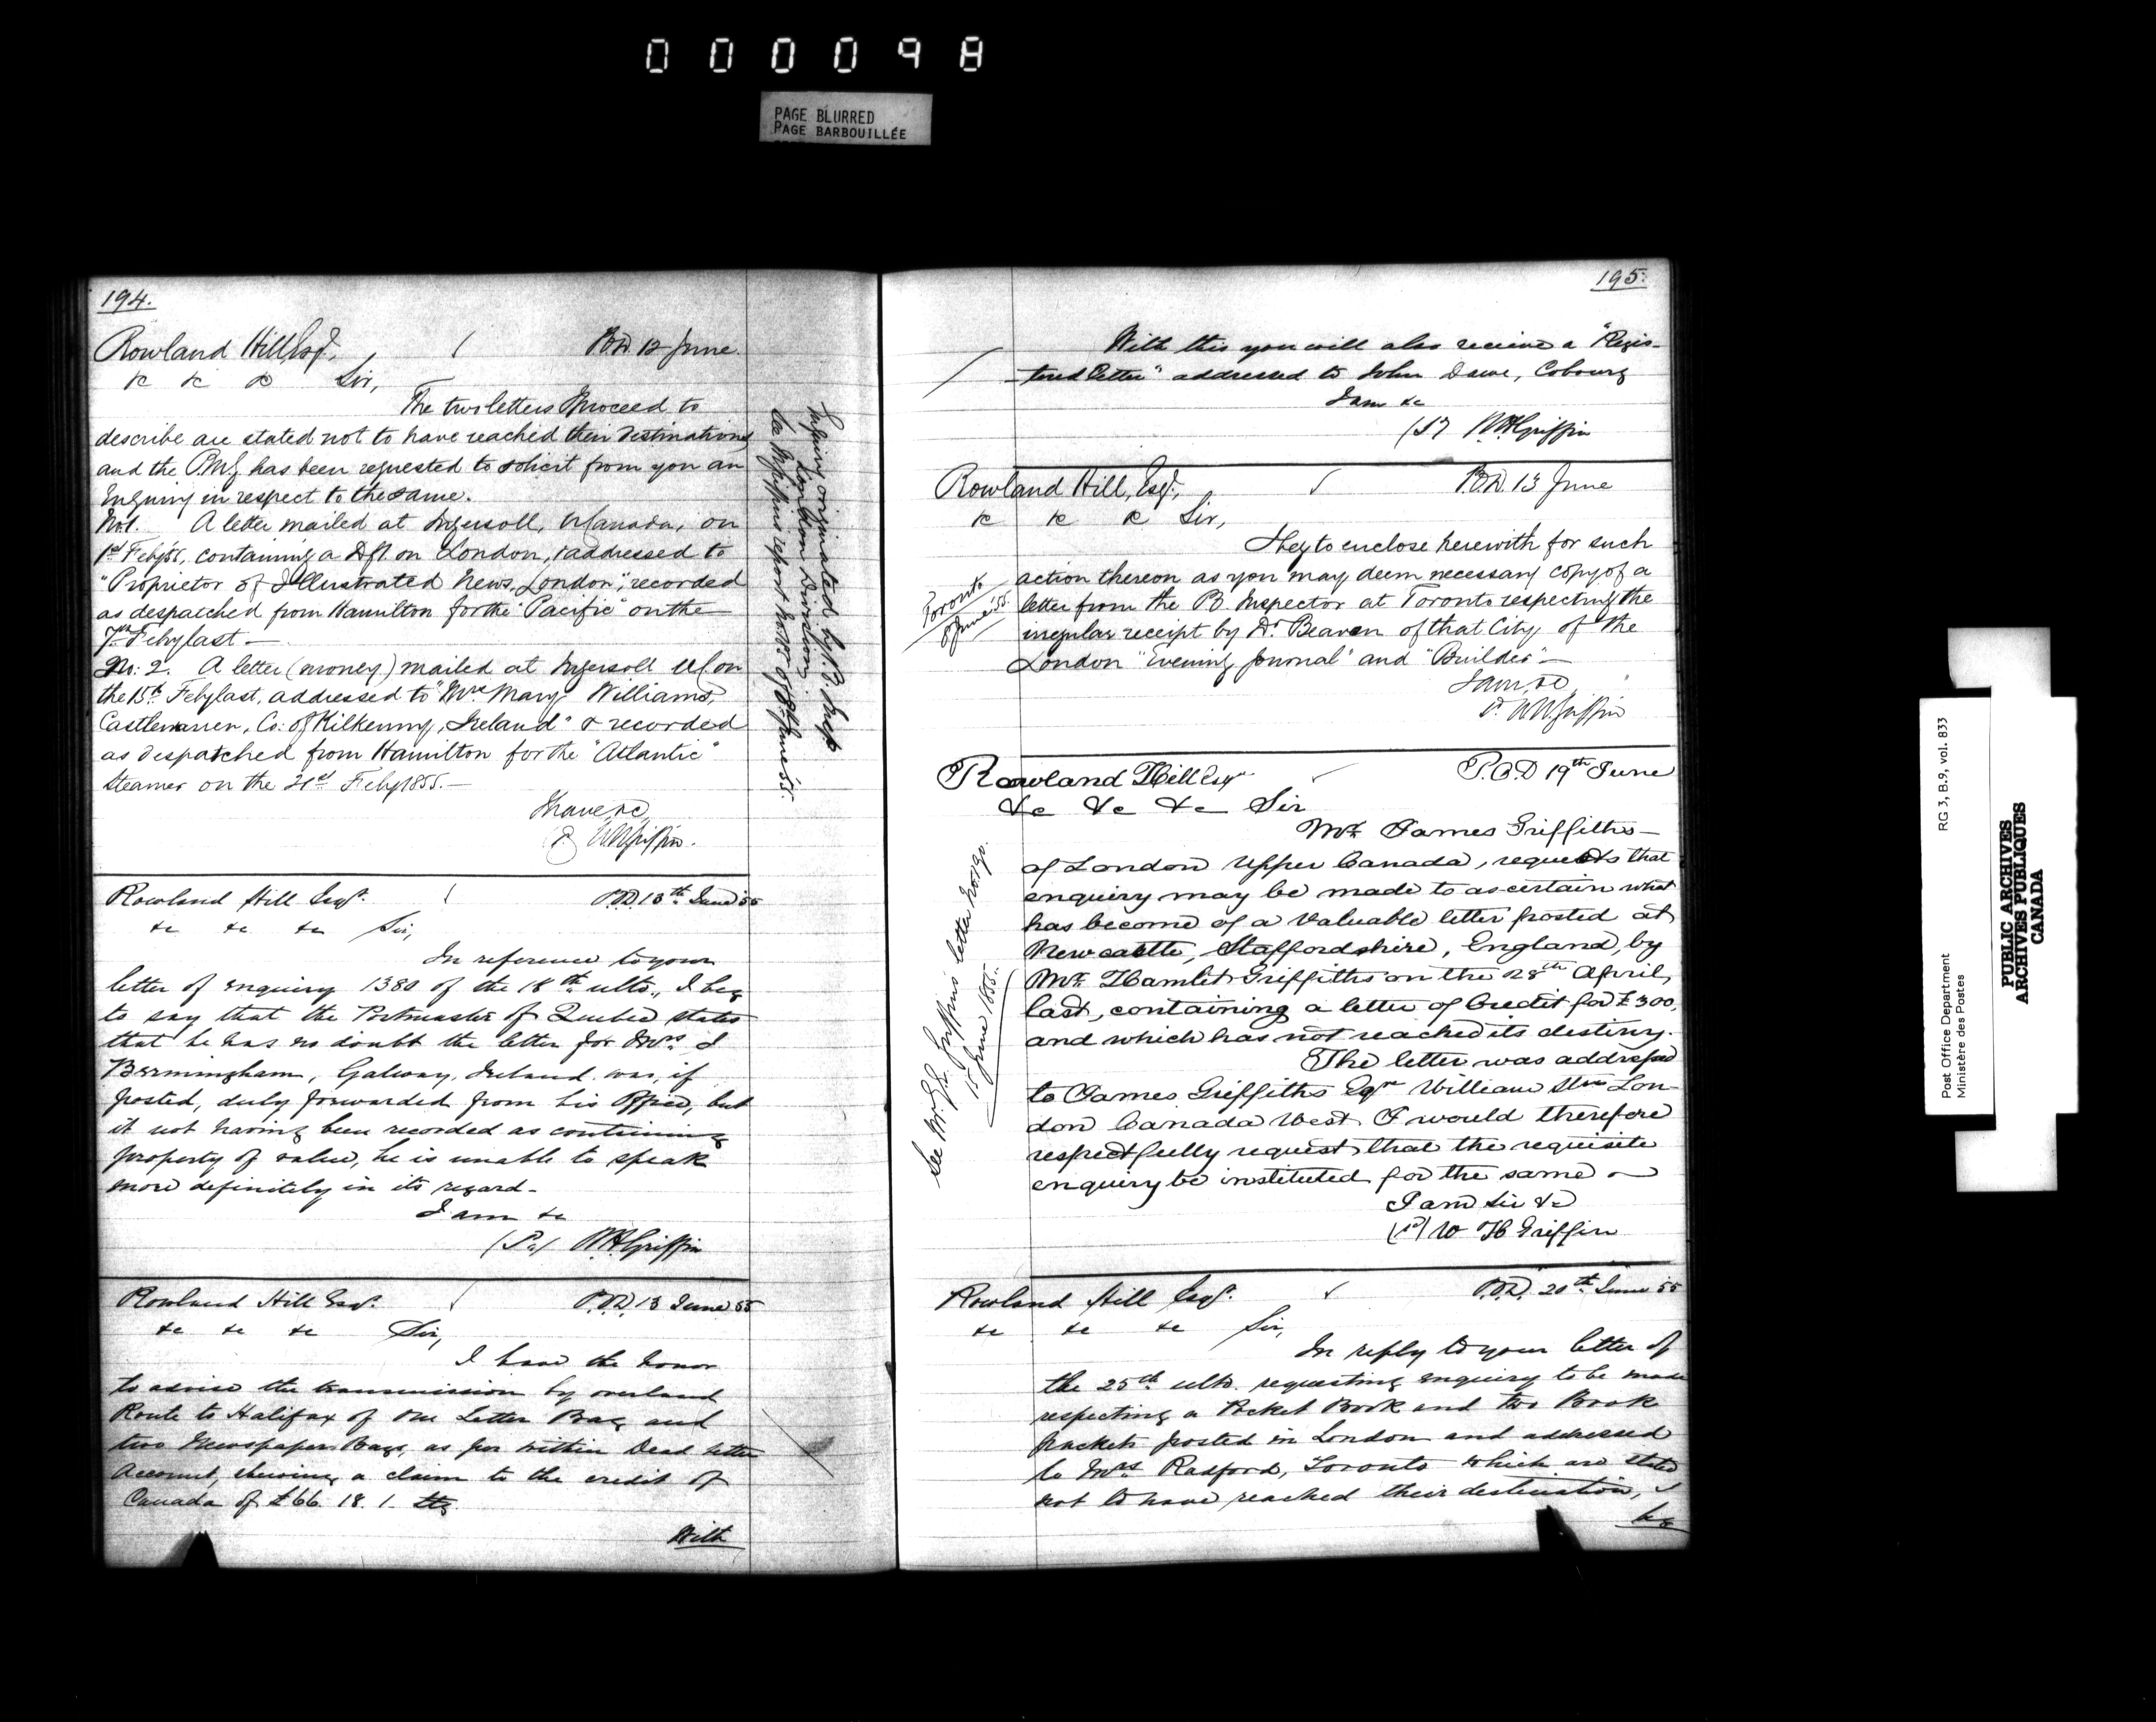 000098
PAGE BLURRED
PAGE BARBOUILLÉE
194.
Rowland Hill, Esqr, P.O.D. 12 June.
&c &c &c Sir,
The two letters I proceed to
describe are stated not to have reached their destinations
and the P.M.G. has been requested to solicit from you an
Enquiry in respect to the same.
No. 1. A letter mailed at Ingersoll, U. Canada, on
1st Feby 55, containing a Dft. on London, addressed to
"Proprietor of Illustrated News, London", recorded
as despatched from Hamilton for the "Pacific" on the
7th Feby last —
No: 2. A letter (money) mailed at Ingersoll U.C. on
the 15th Feby last, addressed to "Mrs Mary Williams,
Castlewarren, Co: of Kilkenny, Ireland" & recorded
as despatched from Hamilton for the "Atlantic"
Steamer on the 21st Feby 1855. —
I have, &c,
W.H. Griffin.
Inquiry originated by P.O. Insp.
London Division
See Mr Griffin's report No. of 8th June '55.
Rowland Hill Esqr. P.O.D. 13th June 55
&c &c &c Sir,
In reference to your
letter of enquiry 1380 of the 18th ulto., I beg
to say that the Postmaster of Quebec states
that he has no doubt the letter for Mrs. J
Bermingham, Galway, Ireland. was, if
posted, duly forwarded from his Office, but
it not having been recorded as containing
property of value, he is unable to speak
more definitely in its regard —
I am &c
W.H. Griffin
Rowland Hill Esqr. P.O.D. 13 June 55
&c &c &c Sir,
I have the honor
to advise the transmission by overland
Route to Halifax of one Letter Bag and
two Newspaper Bags, as per within Dead letter
Account, shewing a claim to the credit of
Canada of £66. 18. 1. Stg
With
195.
With this you will also receive a "Regis-
-tered Letter" addressed to John Dawe, Cobourg
I am &c
W.H. Griffin
Rowland Hill, Esqr, P.O.D. 13 June
&c &c &c Sir,
I beg to enclose herewith for such
action thereon as you may deem necessary copy of a
letter from the P.O. Inspector at Toronto respecting the
irregular receipt by Dr Beaven of that City of the
London "Evening Journal" and "Builder" —
I am, &c,
W.H. Griffin
Toronto
8 June '55.
Rowland Hill Esqr P.O.D 19th June
&c &c &c Sir
Mr. James Griffiths —
of London Upper Canada, requests that
enquiry may be made to ascertain what
has become of a valuable letter posted at
Newcastle, Staffordshire, England, by
Mr. Hamlet Griffiths on the 28th April
last, containing a letter of Credit for £300,
and which has not reached its destiny.
The letter was addressed
to James Griffiths Esqr William Stre Lon-
don Canada West. I would therefore
respectfully request that the requisite
enquiry be instituted for the same —
I am Sir &c
W H Griffin
See Mr. G.E. Griffin's letter No. 190.
15 June 1855.
Rowland Hill Esqr. P.O.D. 20th June 55
&c &c &c Sir,
In reply to your letter of
the 25th ulto. requesting enquiry to be made
respecting a Pocket Book and two Book
packets posted in London and addressed
to Mrs Radford, Toronto which are stated
not to have reached their destination, I
beg
Post Office Department RG 3, B.9, vol. 833
Ministère des Postes
PUBLIC ARCHIVES
ARCHIVES PUBLIQUES
CANADA